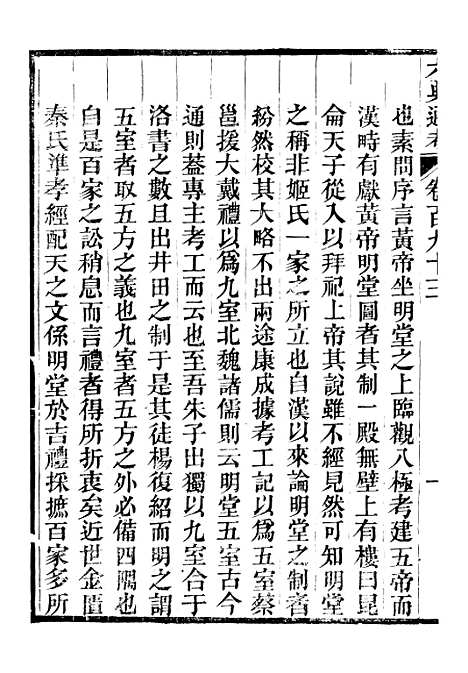 也素問序言黃帝坐明堂之上臨觀八極考建五帝而
漢時有獻黃帝明堂圖者其制一殿無壁上有樓曰昆
侖天子從入以拜祀上帝其說雖不經見然可知明堂
之稱非姬氏一家之所立也自漢以來論明堂之制者
紛然校其大略不出兩途康成據考工記以爲五室蔡
邕援大戴禮以爲九室北魏諸儒則云明堂五室古今
通則葢專主考工而云也至吾朱子出獨以九室合于
洛書之數且出井田之制于是其徒楊復紹而明之謂
五室者取五方之義也九室者五方之外必備四隅也
自是百家之訟稍息而言禮者得所折衷矣近世金匱
秦氏準孝經配天之文係明堂於吉禮採摭百家多所
卷百九十三
一